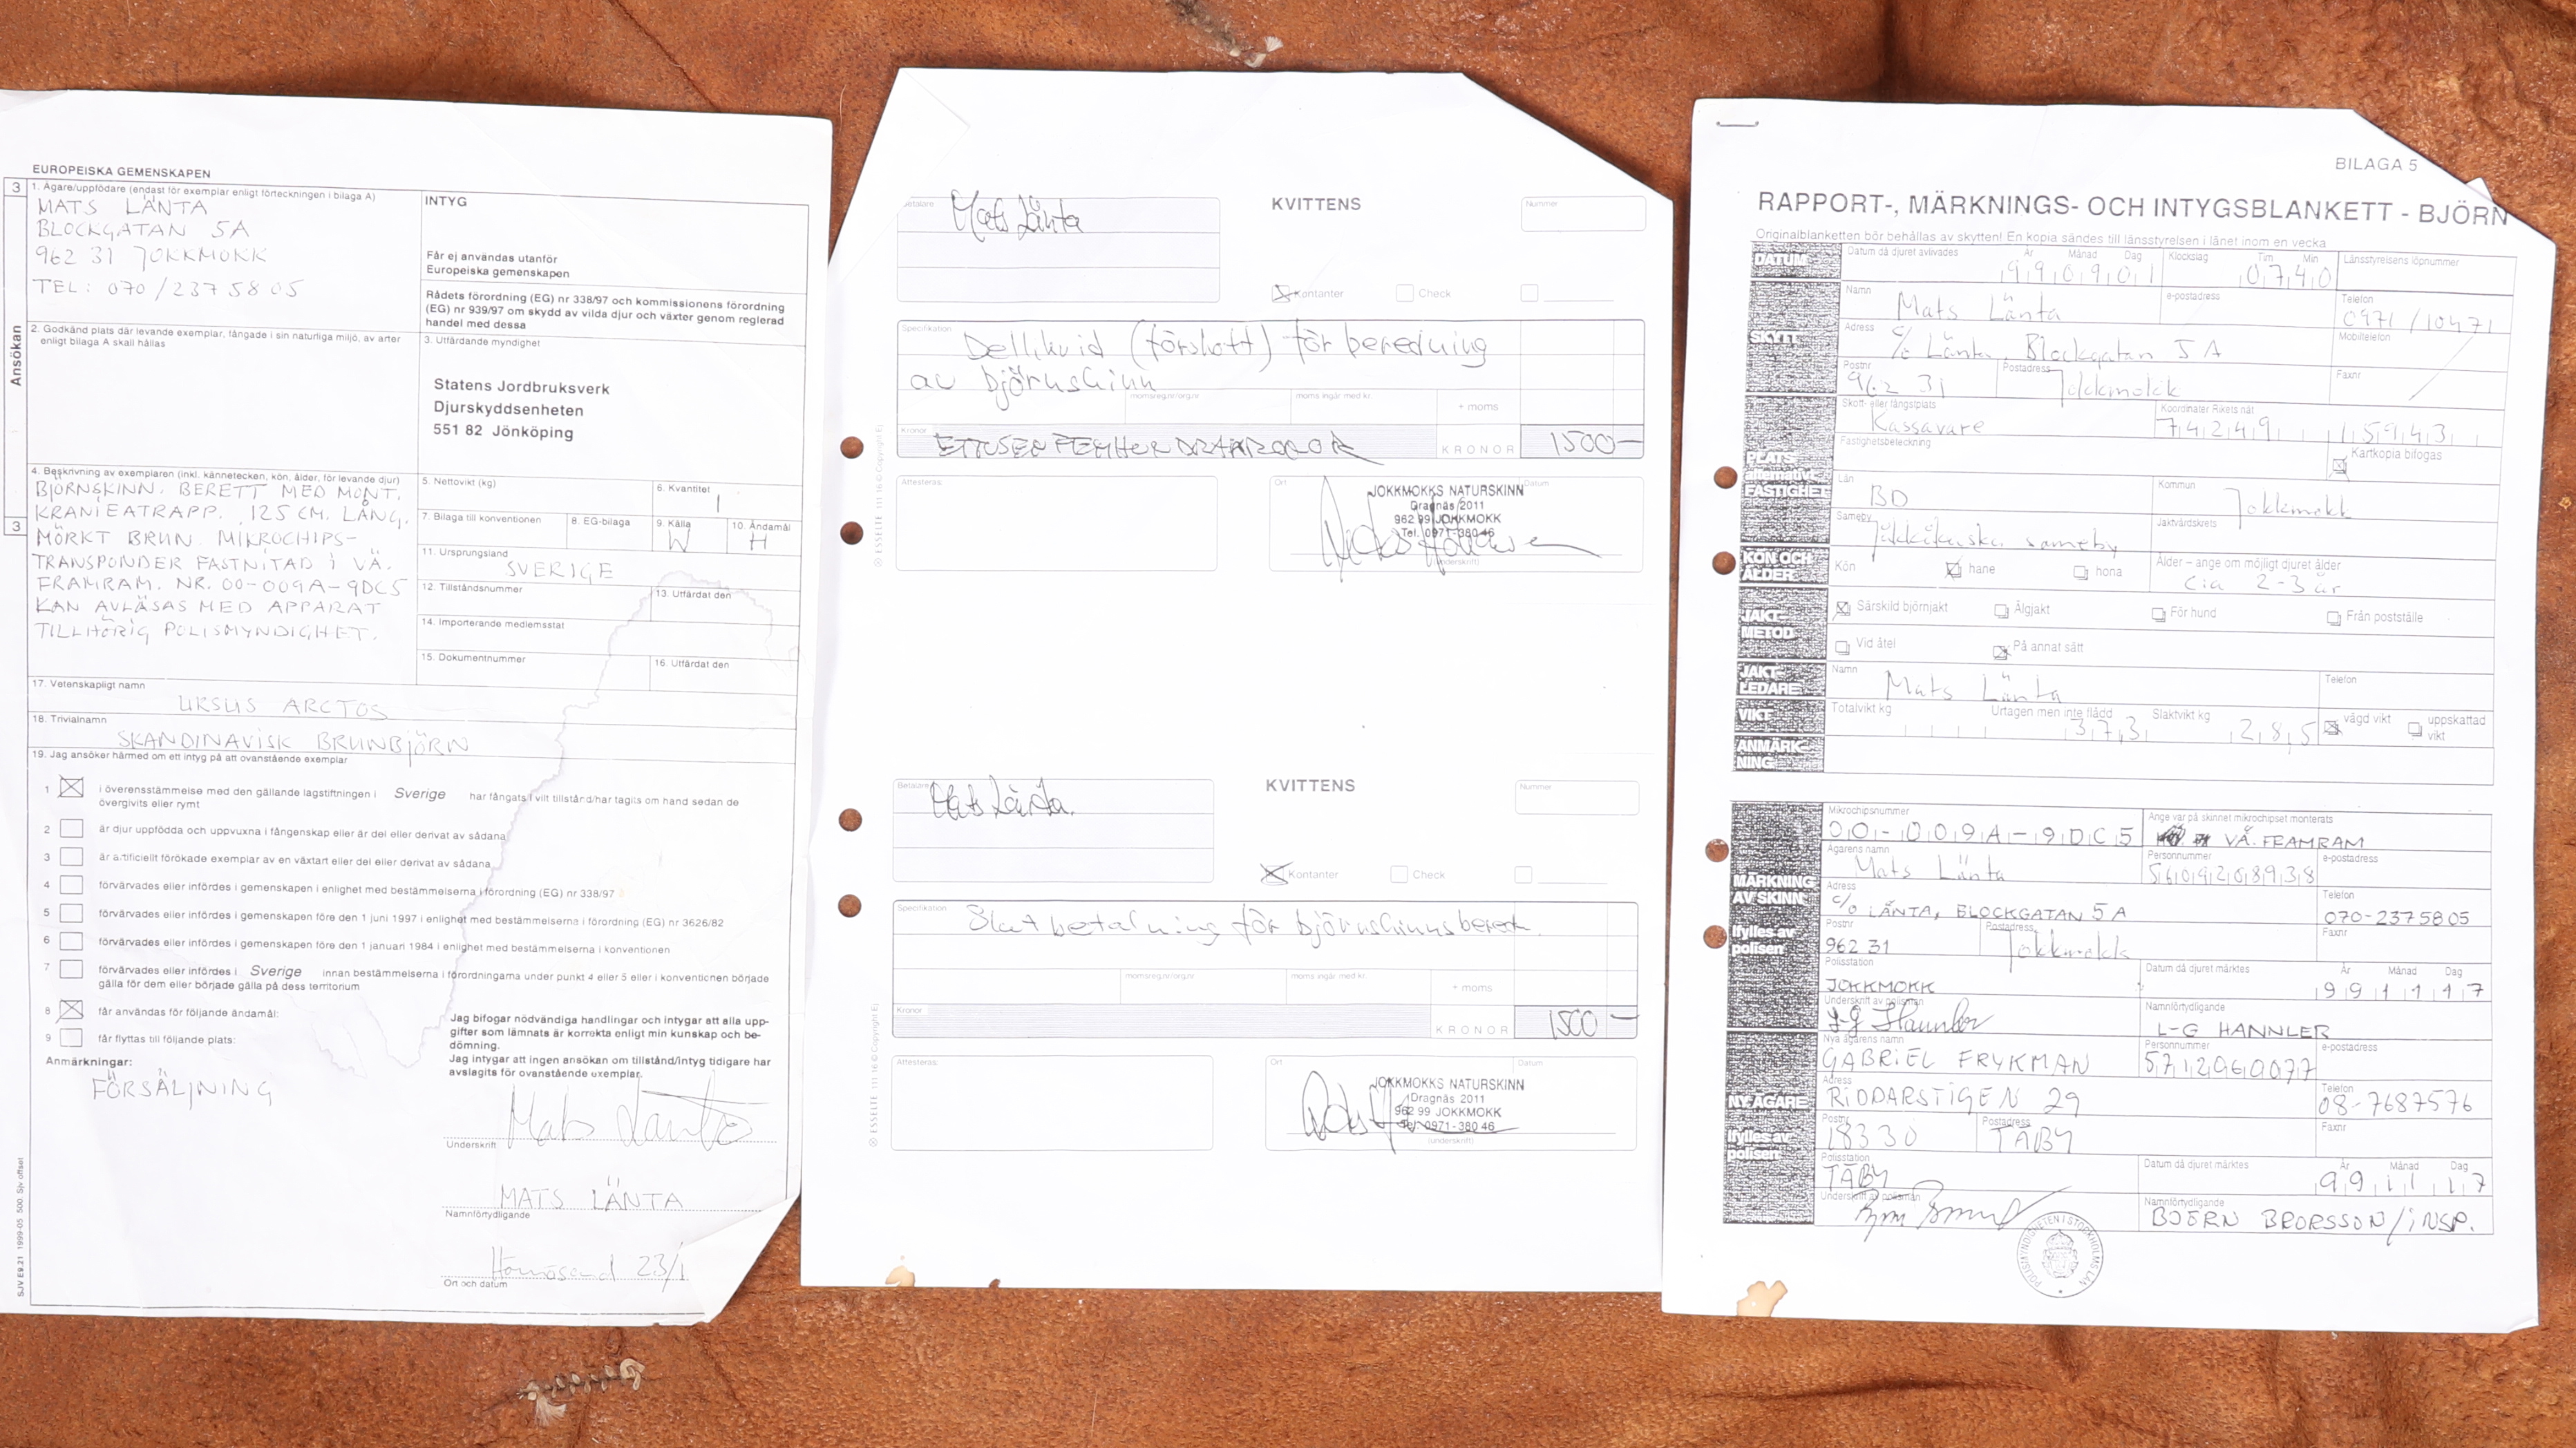 EUROPEISKA GEMENSKAPEN
3
1. Ägare/uppfödare (endast för exemplar enligt förteckningen i bilaga A)
MATS LÄNTA
BLOCKGATAN 5A
962 31 JOKKMOKK
TEL: 070/237 58 05
INTYG
Får ej användas utanför
Europeiska gemenskapen
Rådets förordning (EG) nr 338/97 och kommissionens förordning
(EG) nr 939/97 om skydd av vilda djur och växter genom reglerad
handel med dessa
Ansökan
2. Godkänd plats där levande exemplar, fångade i sin naturliga miljö, av arter
enligt bilaga A skall hållas
3. Utfärdande myndighet
Statens Jordbruksverk
Djurskyddsenheten
551 82 Jönköping
3
4. Beskrivning av exemplaren (inkl. kännetecken, kön, ålder, för levande djur)
BJÖRNSKINN. BERETT MED MONT.
KRANIEATRAPP. 125 CM. LÅNG.
MÖRKT BRUN. MIKROCHIPS-
TRANSPONDER FASTNITAD I VÄ.
FRAMRAM. NR. 00-009A-9DC5
KAN AVLÄSAS MED APPARAT
TILLHÖRIG POLISMYNDIGHET.
5. Nettovikt (kg)
6. Kvantitet
1
7. Bilaga till konventionen
8. EG-bilaga
9. Källa
W
10. Ändamål
H
11. Ursprungsland
SVERIGE
12. Tillståndsnummer
13. Utfärdat den
14. Importerande medlemsstat
15. Dokumentnummer
16. Utfärdat den
17. Vetenskapligt namn
URSUS ARCTOS
18. Trivialnamn
SKANDINAVISK BRUNBJÖRN
19. Jag ansöker härmed om ett intyg på att ovanstående exemplar
1 i överensstämmelse med den gällande lagstiftningen i Sverige har fångats i vilt tillstånd/har tagits om hand sedan de
övergivits eller rymt
2 är djur uppfödda och uppvuxna i fångenskap eller är del eller derivat av sådana
3 är artificiellt förökade exemplar av en växtart eller del eller derivat av sådana
4 förvärvades eller infördes i gemenskapen i enlighet med bestämmelserna i förordning (EG) nr 338/97
5 förvärvades eller infördes i gemenskapen före den 1 juni 1997 i enlighet med bestämmelserna i förordning (EG) nr 3626/82
6 förvärvades eller infördes i gemenskapen före den 1 januari 1984 i enlighet med bestämmelserna i konventionen
7 förvärvades eller infördes i Sverige innan bestämmelserna i förordningarna under punkt 4 eller 5 eller i konventionen började
gälla för dem eller började gälla på dess territorium
8 får användas för följande ändamål:
9 får flyttas till följande plats:
Anmärkningar:
FÖRSÄLJNING
Jag bifogar nödvändiga handlingar och intygar att alla upp-
gifter som lämnats är korrekta enligt min kunskap och be-
dömning.
Jag intygar att ingen ansökan om tillstånd/intyg tidigare har
avslagits för ovanstående exemplar.
Mats Länta
Underskrift
MATS LÄNTA
Namnförtydligande
Härnösand 23/1
Ort och datum
SJV E9.21 1999-05 500. Sjv offset
Betalare
Mats Länta
KVITTENS
Nummer
Kontanter
Check
Specifikation
Dellikvid (förskott) för beredning
av björnskinn
momsreg.nr/org.nr
moms ingår med kr.
+ moms
Kronor
KRONOR
1500-
Attesteras:
Ort
Datum
JOKKMOKKS NATURSKINN
Dragnäs 2011
962 99 JOKKMOKK
Tel. 0971-380 46
(underskrift)
ESSELTE 111 16 © Copyright Ej
Betalare
Mats Länta.
KVITTENS
Nummer
Kontanter
Check
Specifikation
Slutbetalning för björnskinnsberedn.
momsreg.nr/org.nr
moms ingår med kr.
+ moms
Kronor
KRONOR
1500-
Attesteras:
Ort
Datum
JOKKMOKKS NATURSKINN
Dragnäs 2011
962 99 JOKKMOKK
Tel. 0971-380 46
(underskrift)
ESSELTE 111 16 © Copyright Ej
BILAGA 5
RAPPORT-, MÄRKNINGS- OCH INTYGSBLANKETT - BJÖRN
Originalblanketten bör behållas av skytten! En kopia sändes till länsstyrelsen i länet inom en vecka
DATUM
Datum då djuret avlivades
År Månad Dag
990901
Klockslag
Tim Min
0740
Länsstyrelsens löpnummer
SKYTT
Namn
Mats Länta
e-postadress
Telefon
0971/10471
Adress
c/o Länta, Blockgatan 5A
Mobiltelefon
Postnr
962 31
Postadress
Jokkmokk
Faxnr
PLATS
alternativt
FASTIGHET
Skott- eller fångstplats
Kassavare
Koordinater Rikets nät
74249 15943
Fastighetsbeteckning
Kartkopia bifogas
Län
BD
Kommun
Jokkmokk
Sameby
sameby
Jaktvårdskrets
KÖN OCH
ÅLDER
Kön
hane
hona
Ålder – ange om möjligt djuret ålder
Cia 2-3 år
JAKT-
METOD
Särskild björnjakt
Älgjakt
För hund
Från postställe
Vid åtel
På annat sätt
JAKT-
LEDARE
Namn
Mats Länta
Telefon
VIKT
Totalvikt kg
Urtagen men inte flådd
37,3
Slaktvikt kg
28,5
vägd vikt
uppskattad
vikt
ANMÄRK-
NING
MÄRKNING
AV SKINN
Ifylles av
polisen
Mikrochipsnummer
00-009A-9DC5
Ange var på skinnet mikrochipset monterats
VÄ. FRAMRAM
Ägarens namn
Mats Länta
Personnummer
5609268938
e-postadress
Adress
c/o LÄNTA, BLOCKGATAN 5A
Telefon
070-2375805
Postnr
962 31
Postadress
Jokkmokk
Faxnr
Polisstation
JOKKMOKK
Datum då djuret märktes
År Månad Dag
991117
Underskrift av polisman
L-G Hannler
Namnförtydligande
L-G HANNLER
NY ÄGARE
Ifylles av
polisen
Nya ägarens namn
GABRIEL FRYKMAN
Personnummer
5712060077
e-postadress
Adress
RIDDARSTIGEN 29
Telefon
08-7687576
Postnr
18330
Postadress
TÄBY
Faxnr
Polisstation
TÄBY
Datum då djuret märktes
År Månad Dag
991117
Underskrift av polisman
Namnförtydligande
BJÖRN BRORSSON/INSP.
POLISMYNDIGHETEN I STOCKHOLMS LÄN